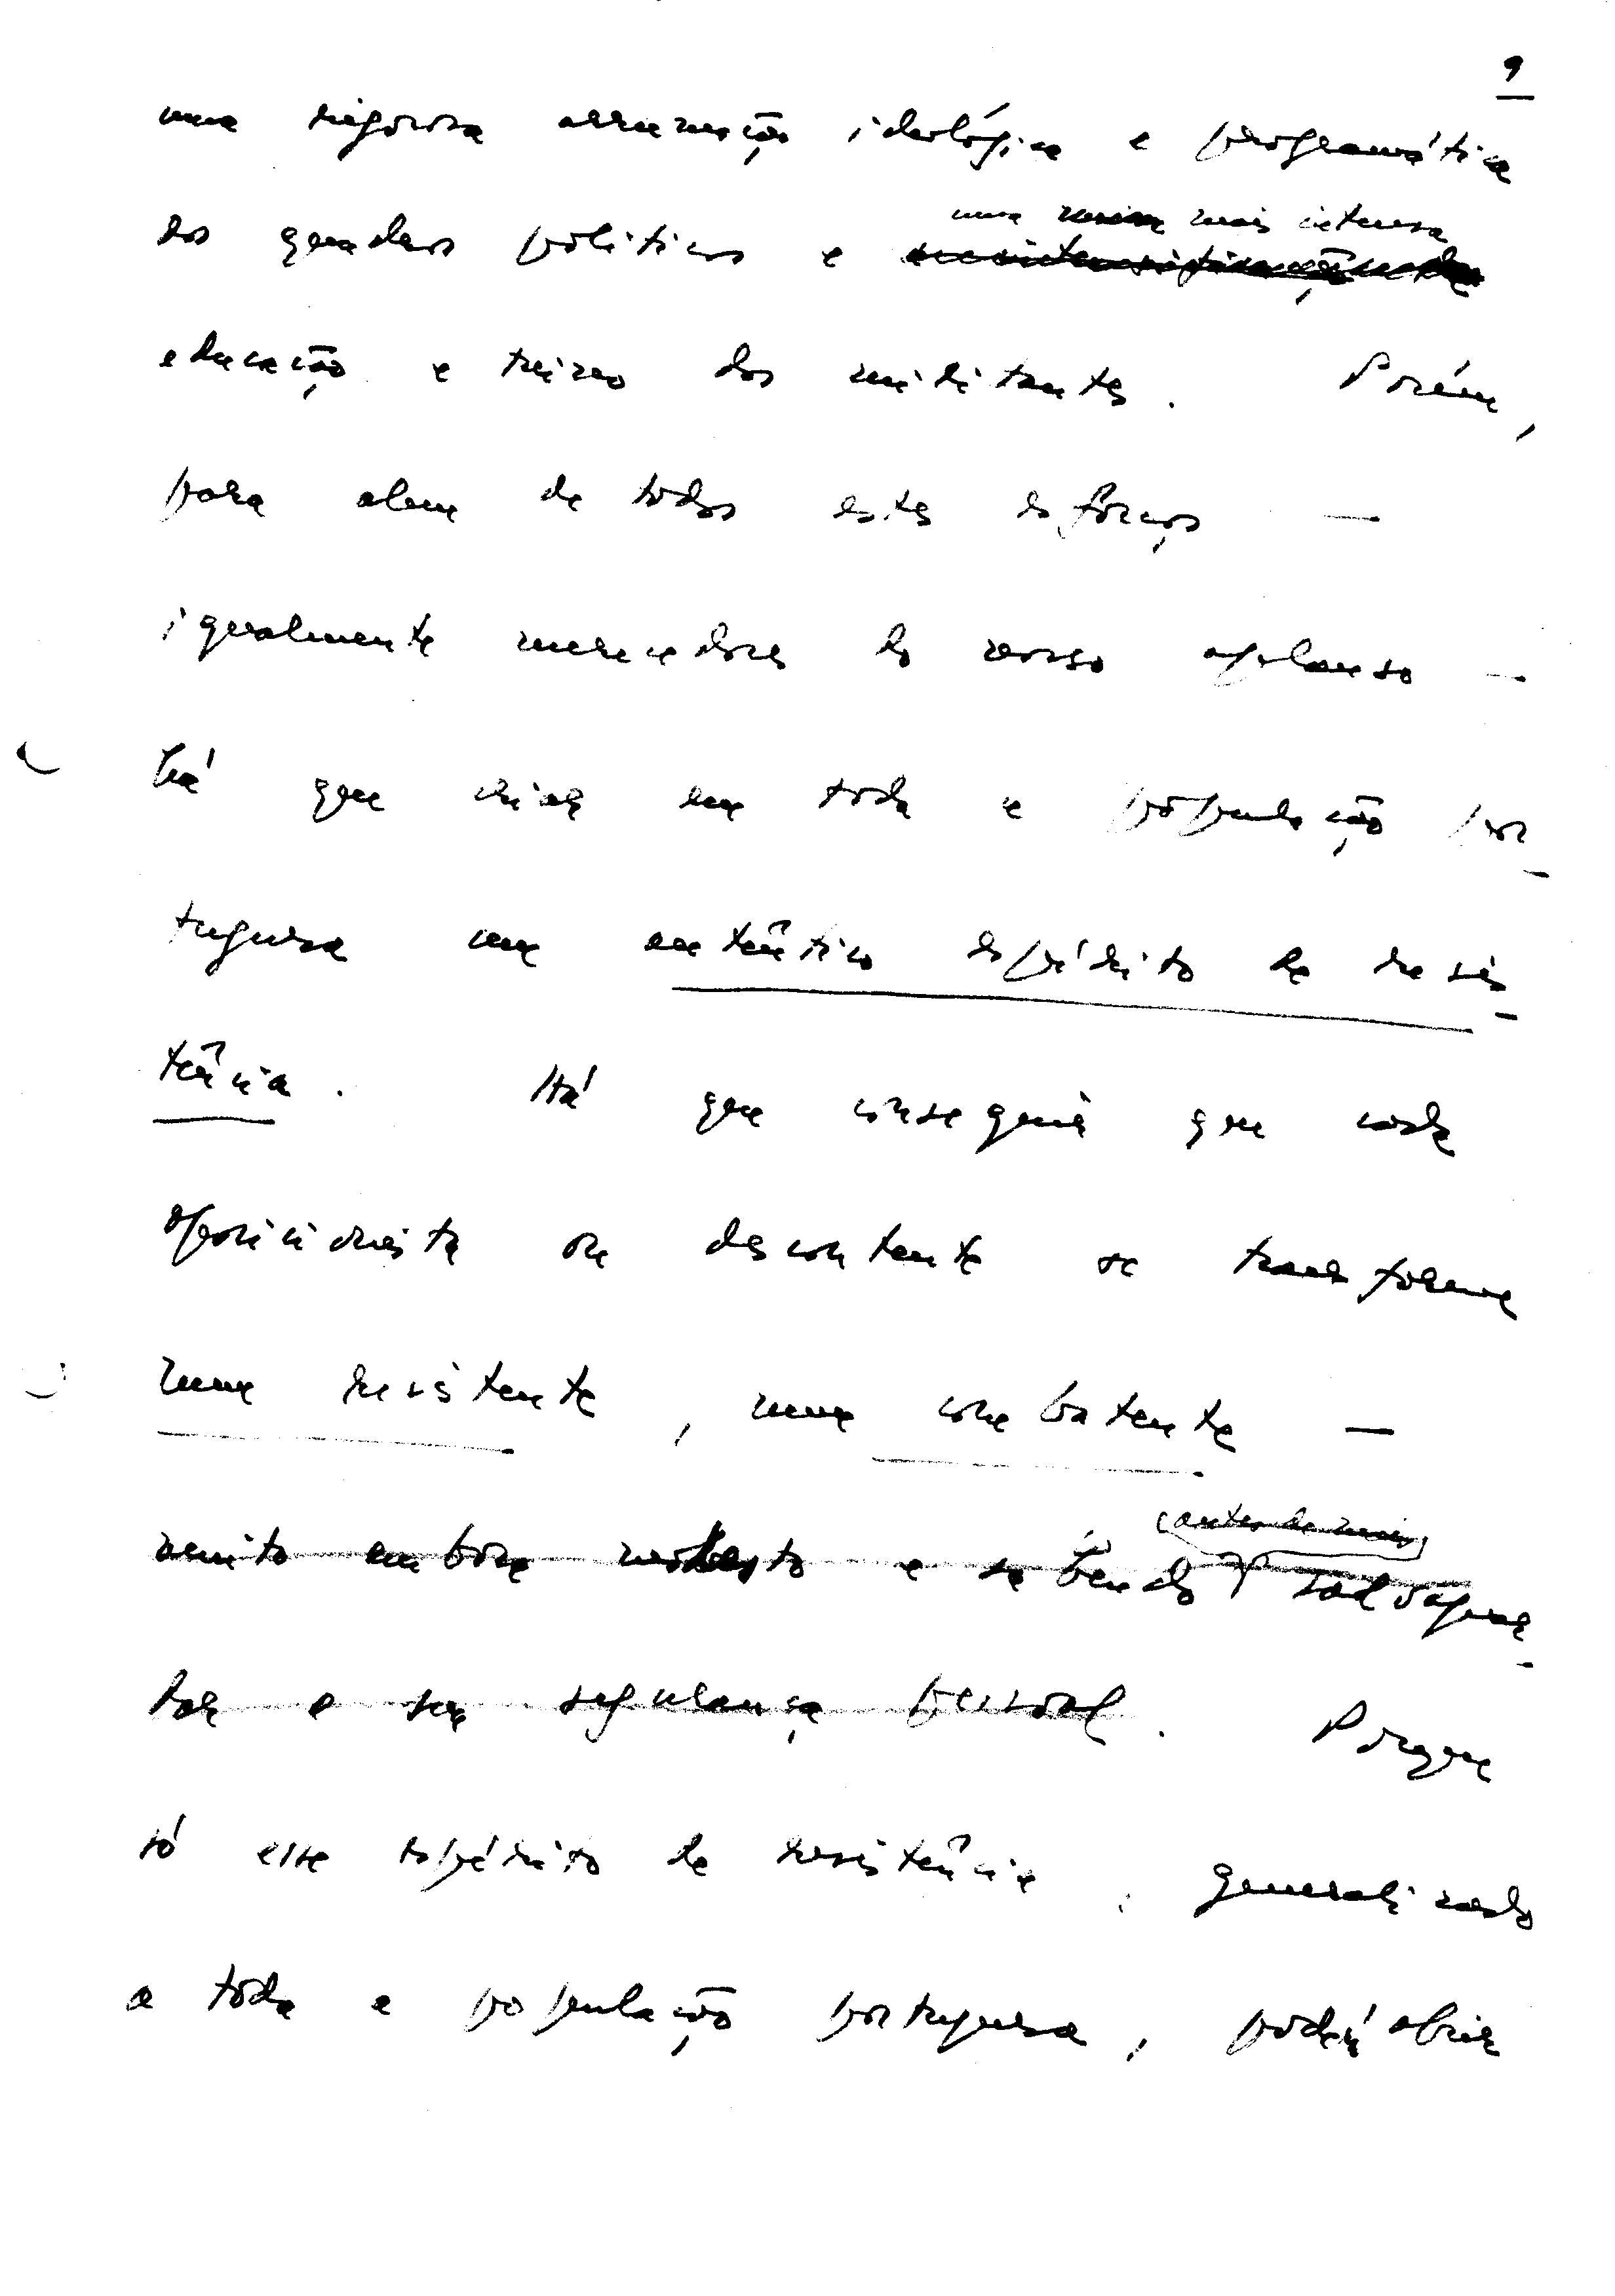 9
uma rigorosa arrumação ideológica e programática
uma mais intensa
dos quadros políticos e
educação e treino dos militantes. Porém,
para alem de todos estes esforços —
igualmente merecedores do nosso aplauso —
há que criar em toda a população por-
tuguesa um autêntico espírito de resis-
tência. Há que conseguir que cada
oposicionista ou descontente se transforme
num resistente, num combatente —
(antes de mais)
muito embora modesto e sabendo salvaguar-
dar a sua segurança pessoal. Porque
só esse espírito de resistência, generalizado
a toda a população portuguesa, poderá abrir